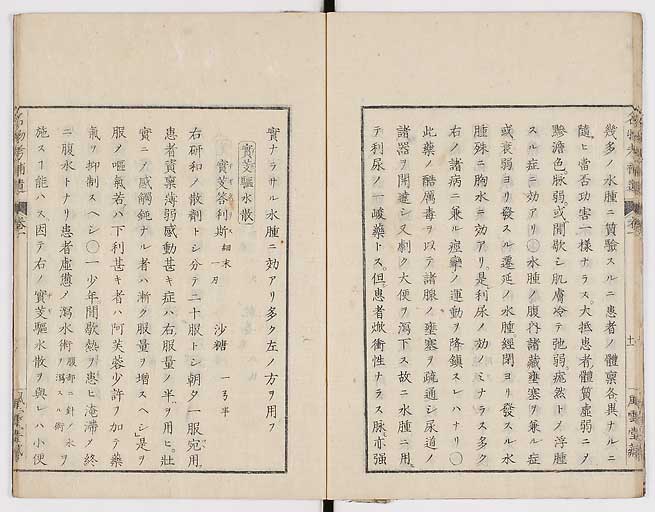 幾多ノ水腫ニ質驗スルニ患者ノ體稟各異ナルニ
隨ヒ當否功害一様ナラス大抵患者體質虚弱ニメ
黲澹色脉弱或間歇シ肌膚冷テ弛弱痝然トノ浮腫
スル症ニ効アリ○水腫ノ腹内諸藏壅塞ヲ兼ル症
或衰弱ヨリ發スル遷延ノ水腫經閉ヨリ發スル水
腫殊ニ胸水ニ効アリ是利尿ノ効ノミナラス多ク
右ノ諸病ニ兼ル痙攣ノ運動ヲ降鎮スレハナリ○
此藥ノ酷厲毒ヲ以テ諸脲ノ壅塞ヲ疏通シ尿道ノ
諸器ヲ開達シ又劇ク大便ヲ瀉下ス故ニ水腫ニ用
テ利尿ノ一峻藥トス但患者焮衝性ナラス脉亦强
實ナラサル水腫ニ効アリ多ク左ノ方ヲ用フ
實芰驅水散
實芰答利斯 細末 一刃 沙糖 一弓半
右研和ノ散劑トシ分テ二十服トシ朝夕一服宛用
患者實稟薄弱感動甚キ症ハ右服量ノ半ヲ用ヒ壯
實ニノ感觸鈍ナル者ハ漸ク服量ヲ増スヘシ是ヲ
服ノ嘔氣若ハ下利甚キ者ハ阿芙蓉少許ヲ加テ藥
氣ヲ抑制スヘシ○一少年間歇熱ヲ患ヒ淹滯ノ終
ニ腹水トナリ患者虚憊ノ瀉水術 腹部ニ針ノ水ヲ瀉スルノ術 ヲ
施スヿ能ハス因テ右ノ實芰驅水散ヲ與レハ小便
十一
風雲堂藏